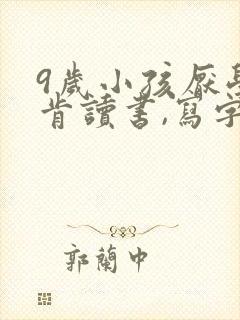 9歲小孩厭學
肯讀書,寫字
郭蘭中